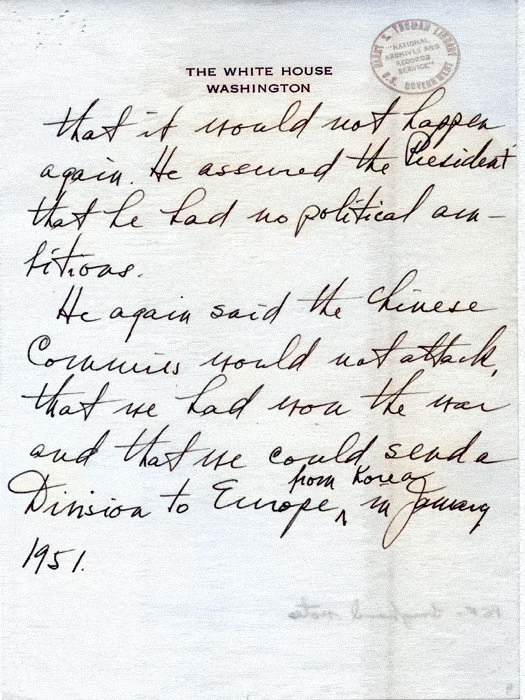 HARRY S. TRUMAN LIBRARY
"NATIONAL
ARCHIVES AND
RECORDS
SERVICE"
U.S. GOVERNMENT
THE WHITE HOUSE
WASHINGTON
that it would not happen
again. He assured the President
that he had no political am-
bitions.
He again said the Chinese
Commies would not attack,
that we had won the war
and that we could send a
Division to Europe ^ from Korea in January
1951.